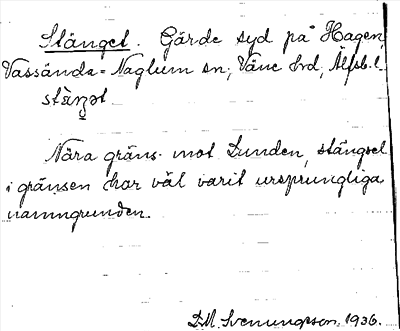 Stänget. Gärde syd på Hagen,
Vassända-Naglum sn, Väne hrd, Älfsb. l.
stäŋət
Nära gräns mot Lunden, stängsel
i gränsen har väl varit ursprungliga
namngrunden.
D.M. Svenungsson, 1936.